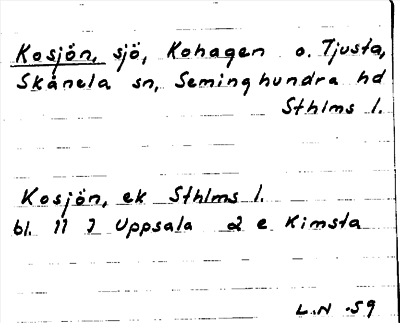 Kosjön, sjö, Kohagen o. Tjusta,
Skånela sn, Seminghundra hd
Sthlms l.
Kosjön, ek Sthlms l.
bl. 11 I Uppsala 2 e Kimsta
L.N -59